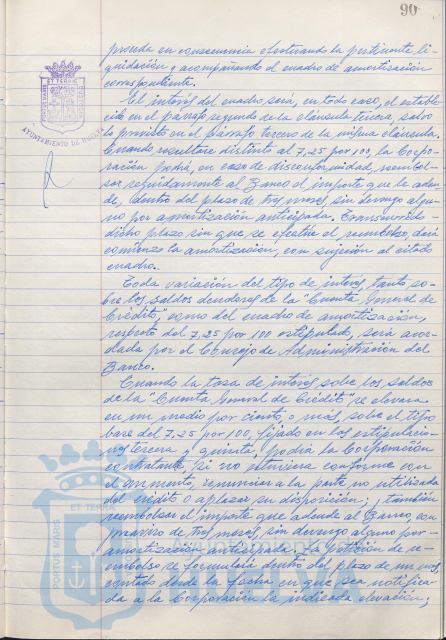 90
proceda en consecuencia efectuando la pertinente li-
quidación y acompañando el cuadro de amortización
correspondiente.
El interés del cuadro será, en todo caso, el estable-
cido en el párrafo segundo de la cláusula tercera, salvo
lo previsto en el párrafo tercero de la misma cláusula.
Cuando resultare distinto al 7,25 por 100, la Corpo-
ración podrá, en caso de disconformidad, reembol-
sar seguidamente al Banco el importe que le adeu-
de, dentro del plazo de tres meses, sin devengo algu-
no por amortización anticipada. Transcurrido
dicho plazo sin que se efectúe el reembolso, dará
comienzo la amortización, con sujeción al citado
cuadro.
Toda variación del tipo de interés, tanto so-
bre los saldos deudores de la "Cuenta General de
Crédito", como del cuadro de amortización,
respecto del 7,25 por 100 estipulado, será acor-
dada por el Consejo de Administración del
Banco.
Cuando la tasa de interés sobre los saldos
de la "Cuenta General de Crédito" se elevara
en un medio por ciento, o más, sobre el tipo
base del 7,25 por 100, fijado en las estipulacio-
nes tercera y quinta, podrá la Corporación
contratante, si no estuviera conforme con
el aumento, renunciar a la parte no utilizada
del crédito o aplazar su disposición; y, también
reembolsar el importe que adeude al Banco, con
preaviso de tres meses, sin devengo alguno por
amortización anticipada. La petición de re-
embolso se formulará dentro del plazo de un mes,
contado desde la fecha en que sea notifica-
da a la Corporación la indicada elevación;
PORTUS MARIS
ET TERRAE
AYUNTAMIENTO DE HUELVA
PORTUS MARIS
ET TERRAE
HUELVA